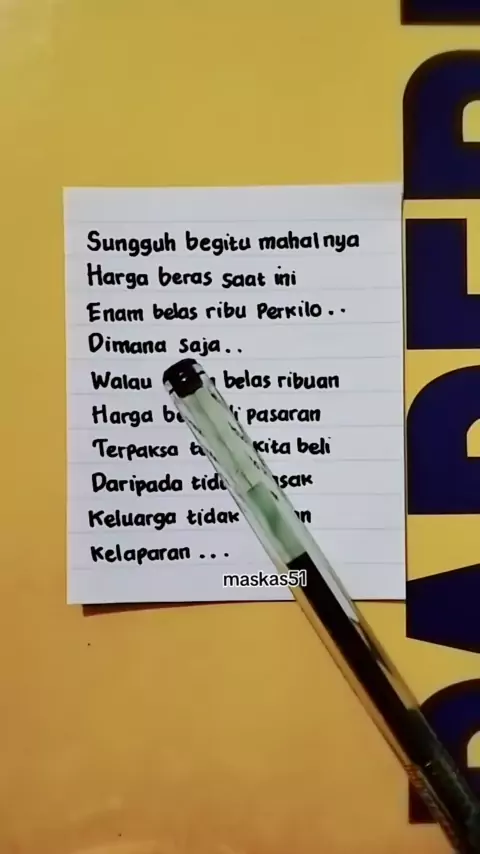 Sungguh begitu mahalnya
Harga beras saat ini
Enam belas ribu Perkilo..
Dimana saja..
Walau belas ribuan
Harga pasaran
Terpaksa kita beli
Daripada
Keluarga tidak
Kelaparan...
maskas51